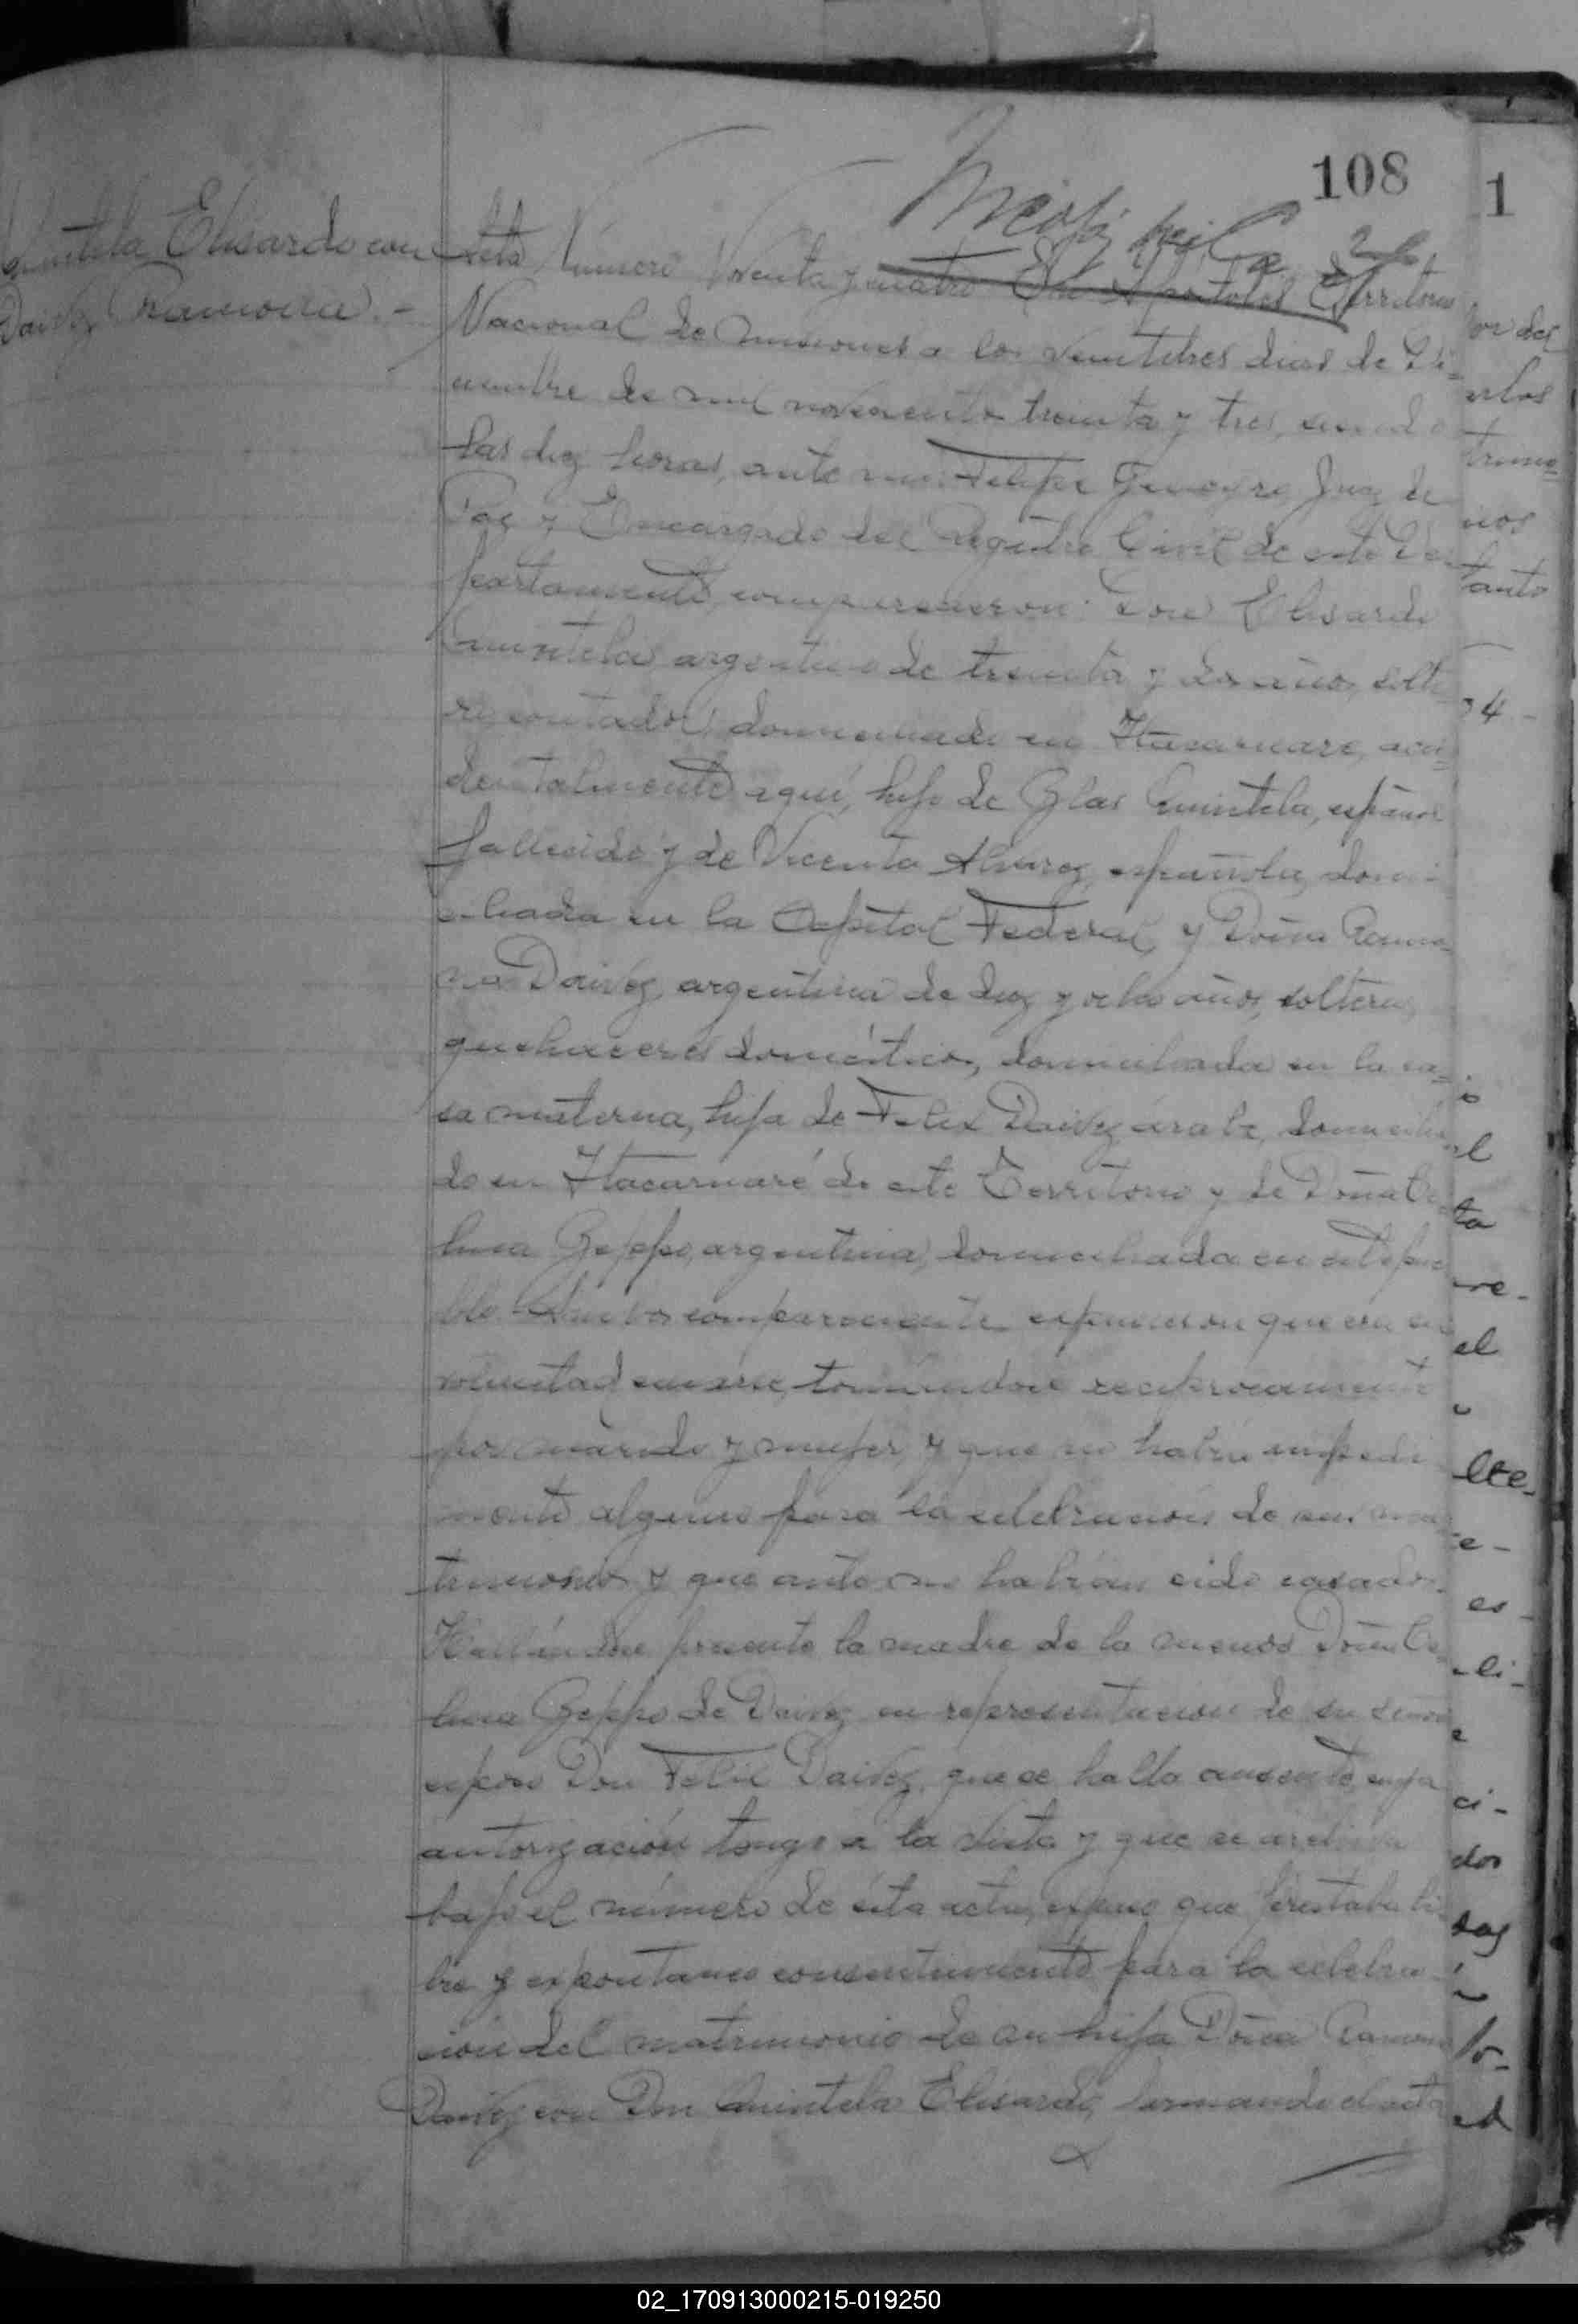 108
1
Quintela Elisardo con
Daivez Ramona.-
Acta Número Noventa y cuatro En Apóstoles Territorio
Nacional de Misiones a los veintitres dias de Di-
ciembre de mil novecientos treinta y tres, siendo
las diez horas, ante mi: Felipe Juez de
Paz y Encargado del Registro Civil de este De-
partamento, comparecieron: Don Elisardo
Quintela, argentino de treinta y dos años, solte-
ro, contador, domiciliado en Itacaruaré, acci-
dentalmente aquí, hijo de Blas Quintela, español
fallecido y de Vicenta Alvarez, española, domi-
ciliada en la Capital Federal, y Doña Ramo-
na Daivez, argentina de diez y ocho años, soltera,
quehaceres domésticos, domiciliada en la ca-
sa materna, hija de Felix Daivez, árabe, domicilia-
do en Itacaruaré de este Territorio y de Doña Ce-
lina Beppo, argentina, domiciliada en este pue-
blo. Ambos comparecientes expusieron que era su
voluntad unirse, tomándose recíprocamente
por marido y mujer, y que no había impedi-
mento alguno para la celebración de su ma-
trimonio y que antes no habían sido casados.
Hallándose presente la madre de la menor Doña Ce-
lina Beppo de Daivez en representación de su señor
esposo Don Felix Daivez, que se halla ausente, cuya
autorización tengo a la vista y que se archiva
bajo el número de ésta acta, expuso que prestaba li-
bre y expontaneo consentimiento para la celebra-
ción del matrimonio de su hija Doña Ramona
Daivez con Don Quintela Elisardo, firmando el acta
tanto
34 -
l
ta
re-
el
lte-
e-
es-
li-
e
ci-
dos
ed
02_170913000215-019250